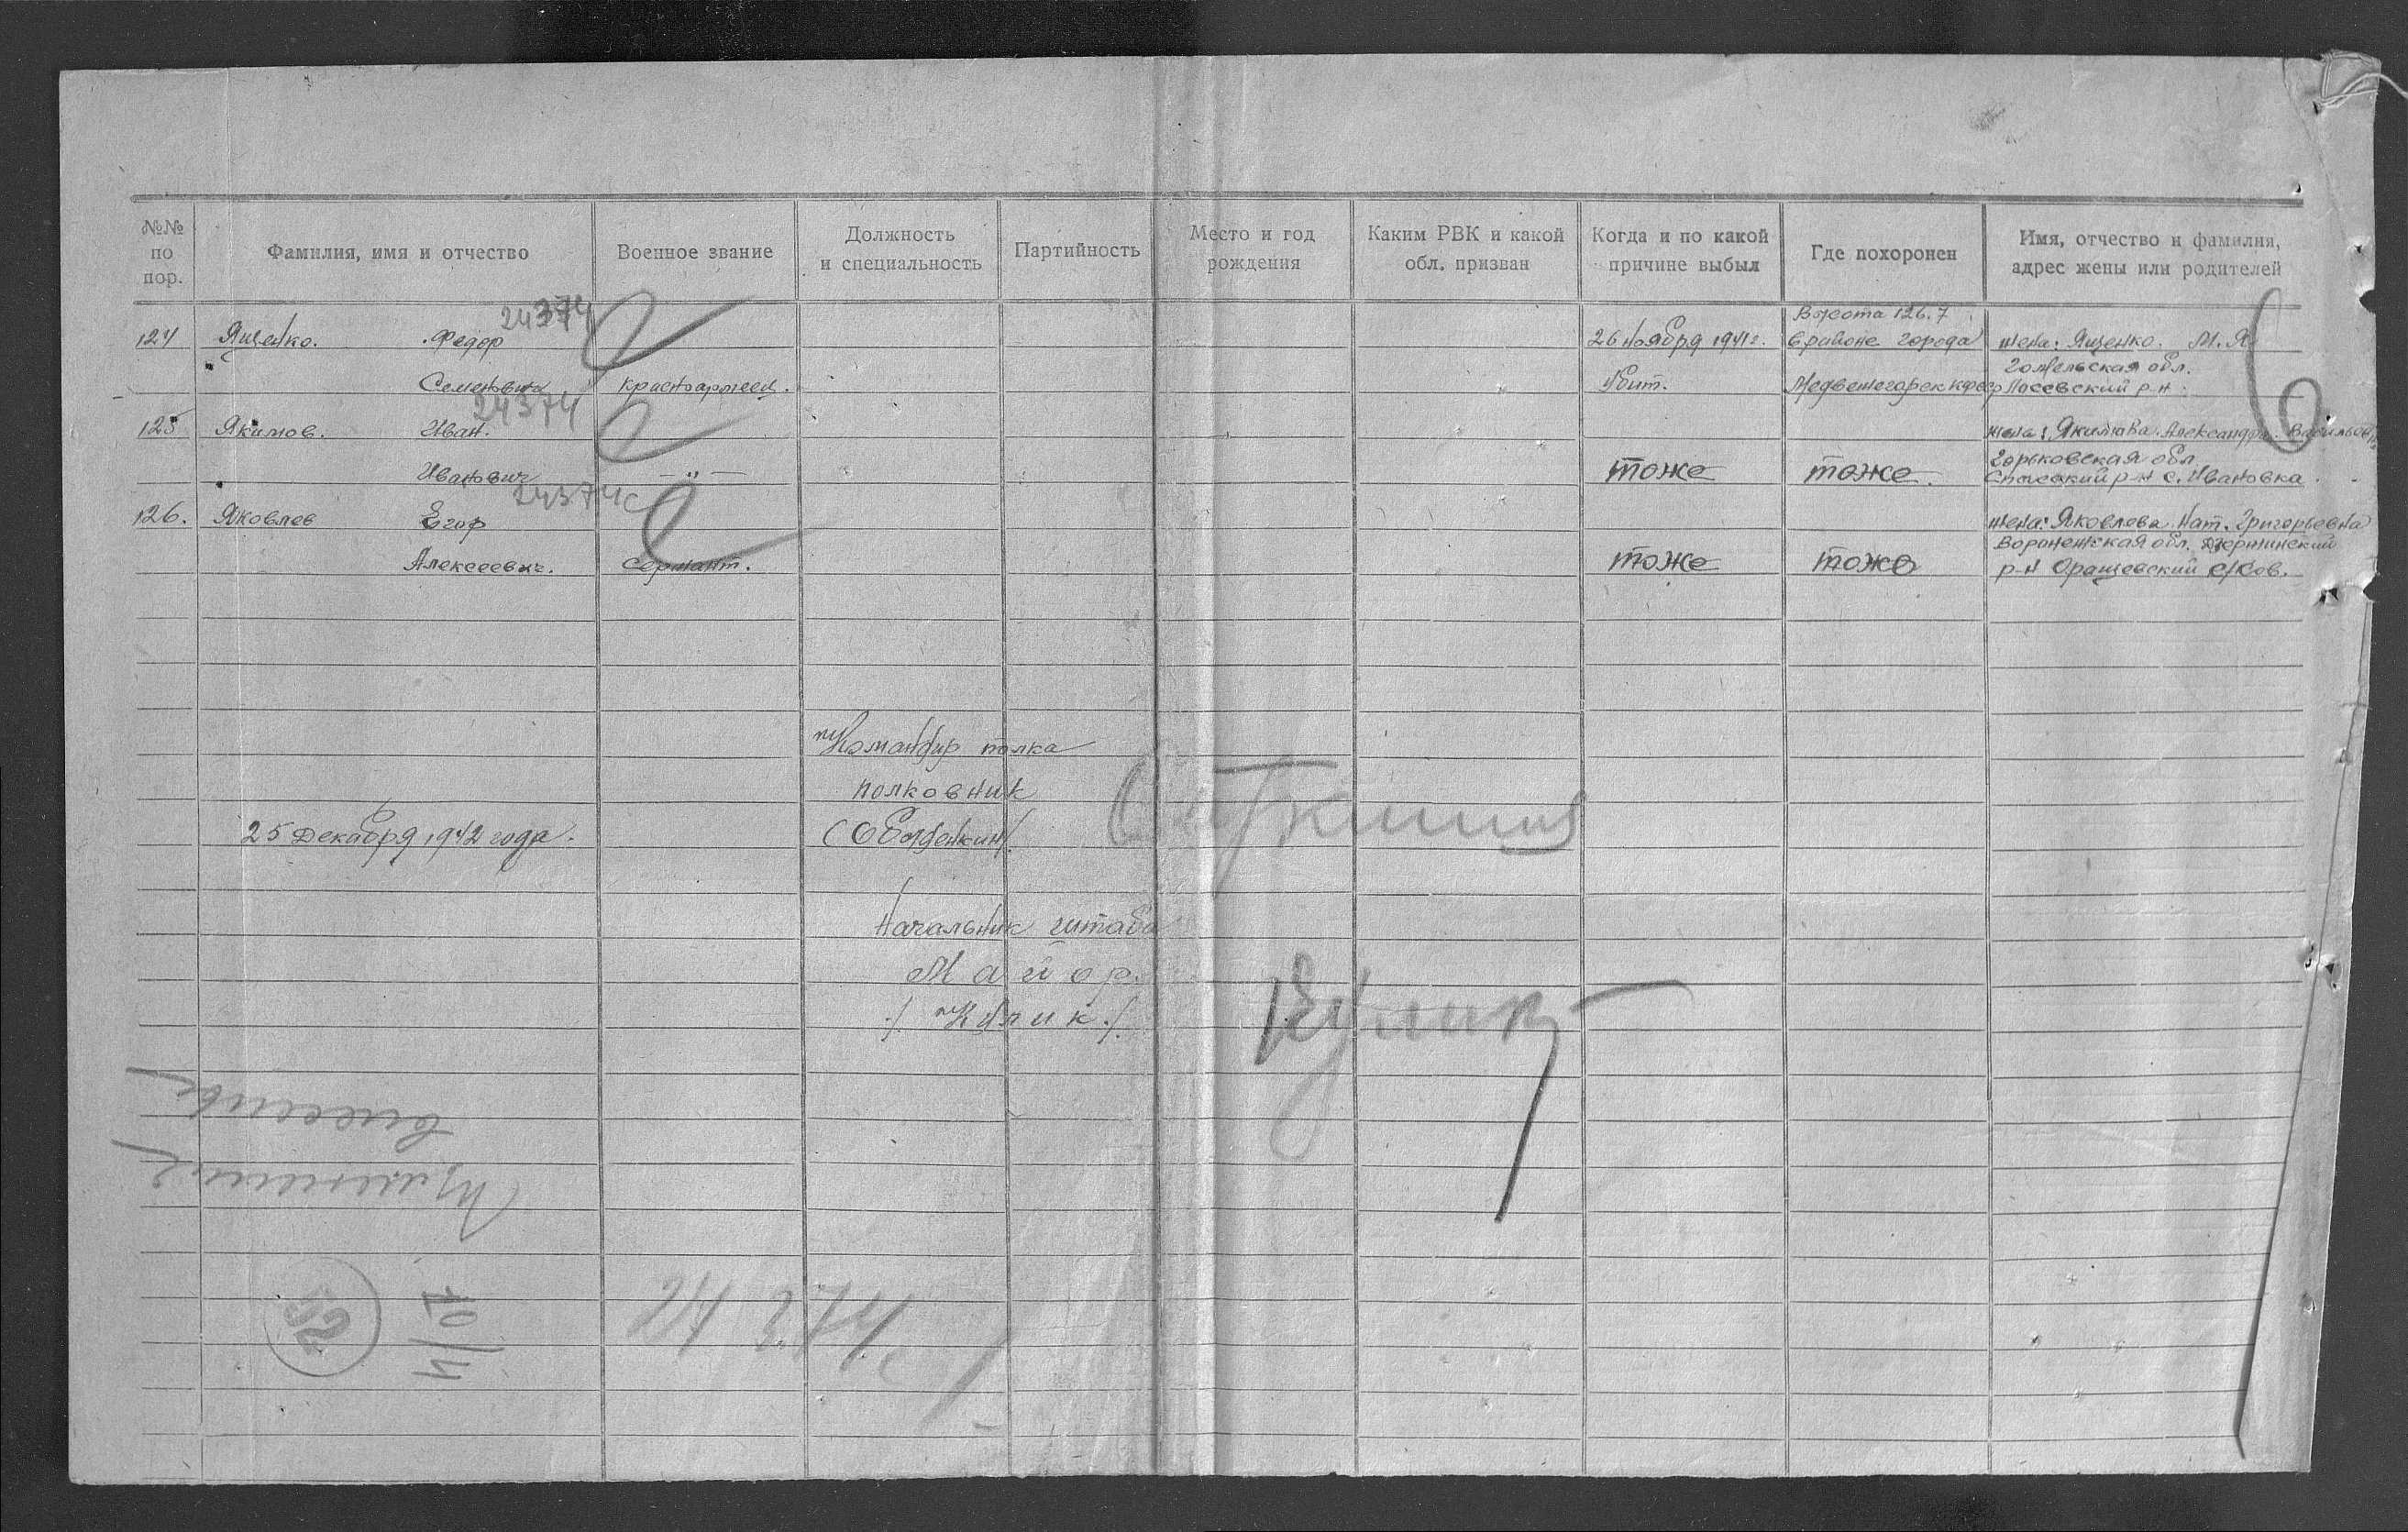 №№ по пор.
Фамилия, имя и отчество
Военное звание
Должность и специальность
Партийность
Место и год рождения
Каким РВК и какой обл. призван
Когда и по какой причине выбыл
Где похоронен
Имя, отчество и фамилия, адрес жены или родителей
24374
Высота 126.7
124 Ященко. Федор 26 ноября 1941 г. в районе города жена: Ященко. М. Я.
Гомельская обл.
Семенович красноармеец. Убит. р-н
24374
125 Якимов. Иван. жена: Якимова Александра Васильевна
Горьковская обл.
Иванович —„— тоже тоже. Спасский р-н с. Ивановка
24374с
126. Яковлев Егор жена: Яковлева Нат. Григорьевна
Воронежская обл.
Алексеевич. Сержант. тоже тоже р-н с/сов.
Командир полка
полковник
25 декабря 1942 года.
Начальник штаба
Майор.
/Кулик./
Кулик
24374